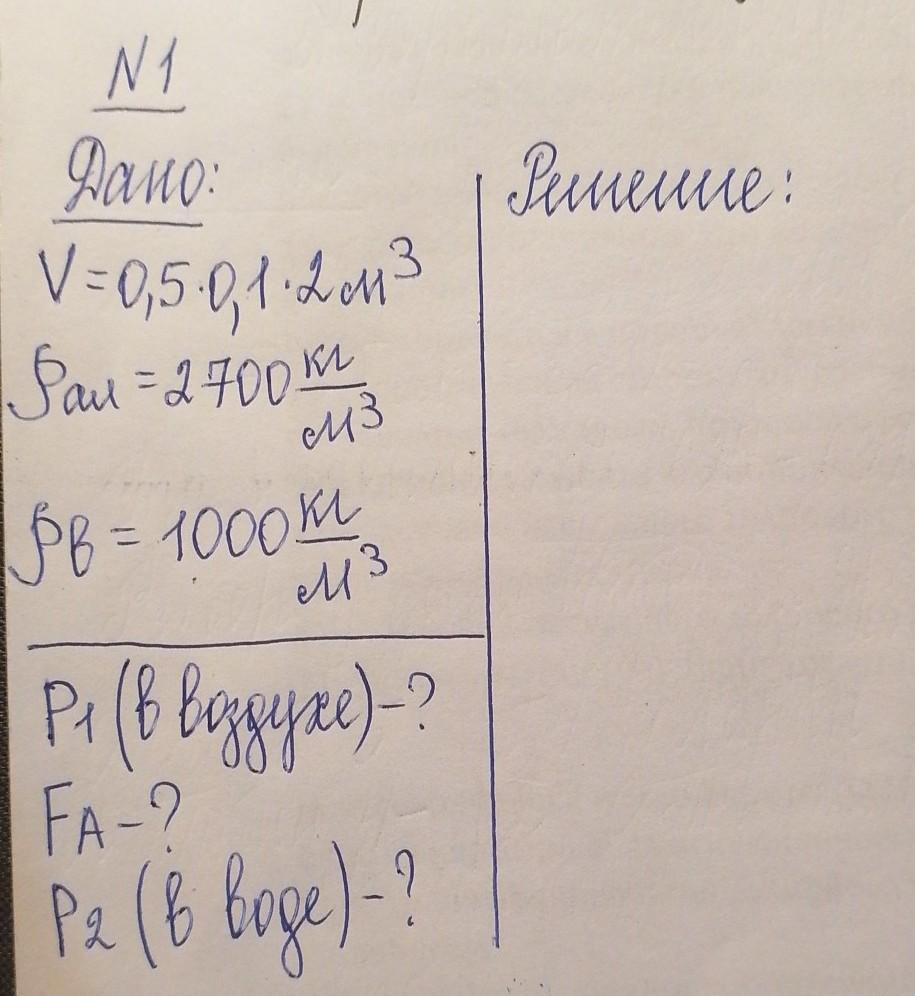 N1
Дано:
V=0,5·0,1·2м³
ρал=2700 кг/м³
ρв=1000 кг/м³
P₁(в воздухе)-?
FA-?
P₂(в воде)-?
Решение: